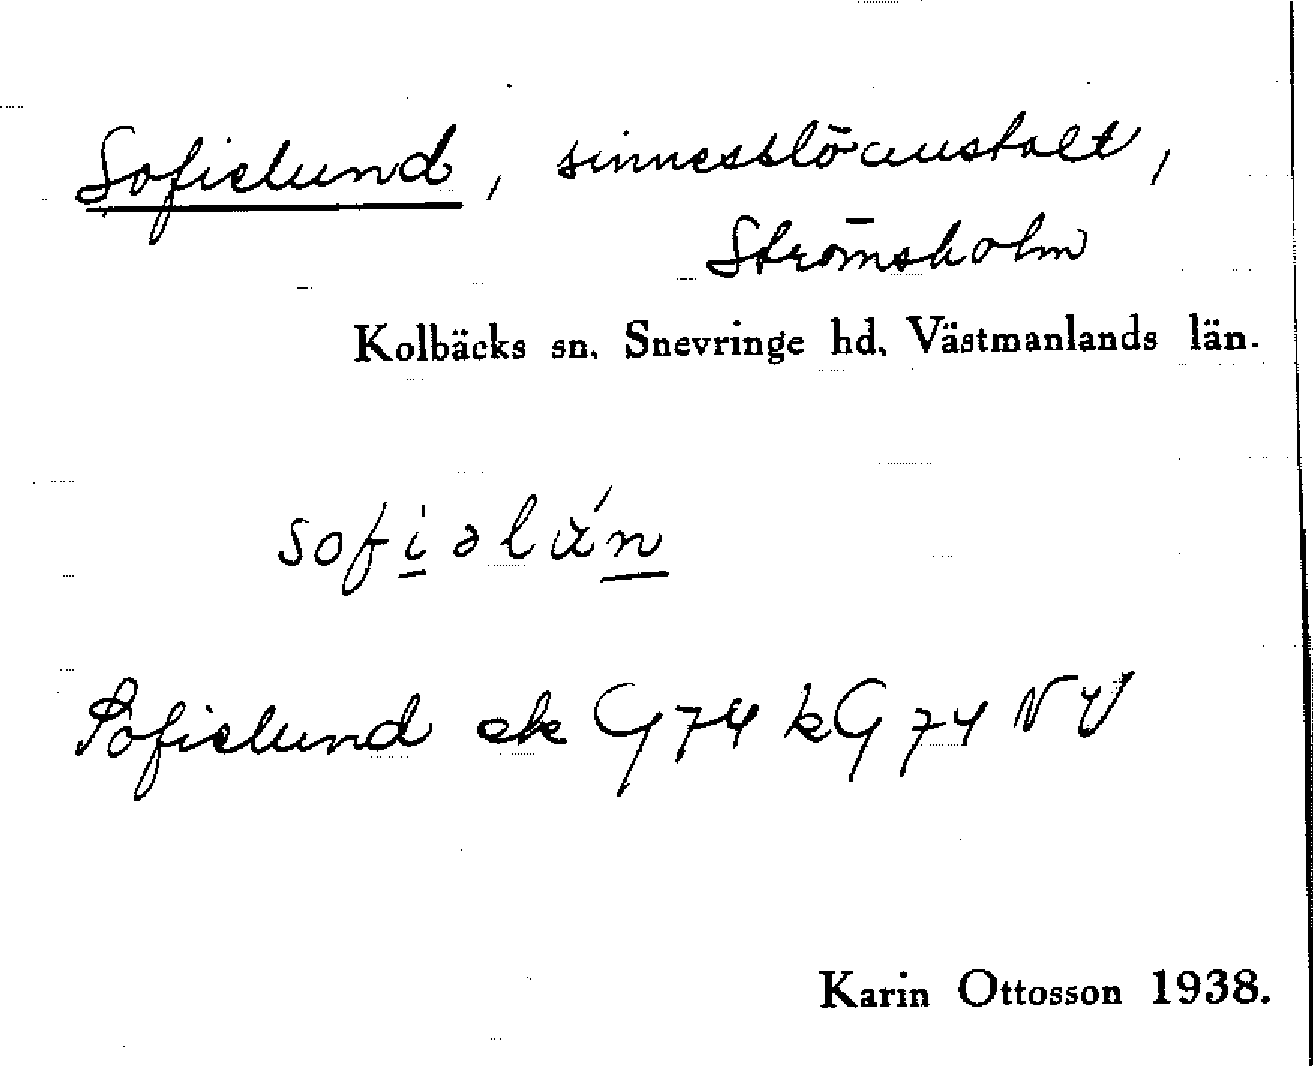 Sofielund, sinnesslöanstalt,
Strömsholm
Kolbäcks sn. Snevringe hd. Västmanlands län.
Sofielund ek G 74 kG 74 NV
Karin Ottosson 1938.